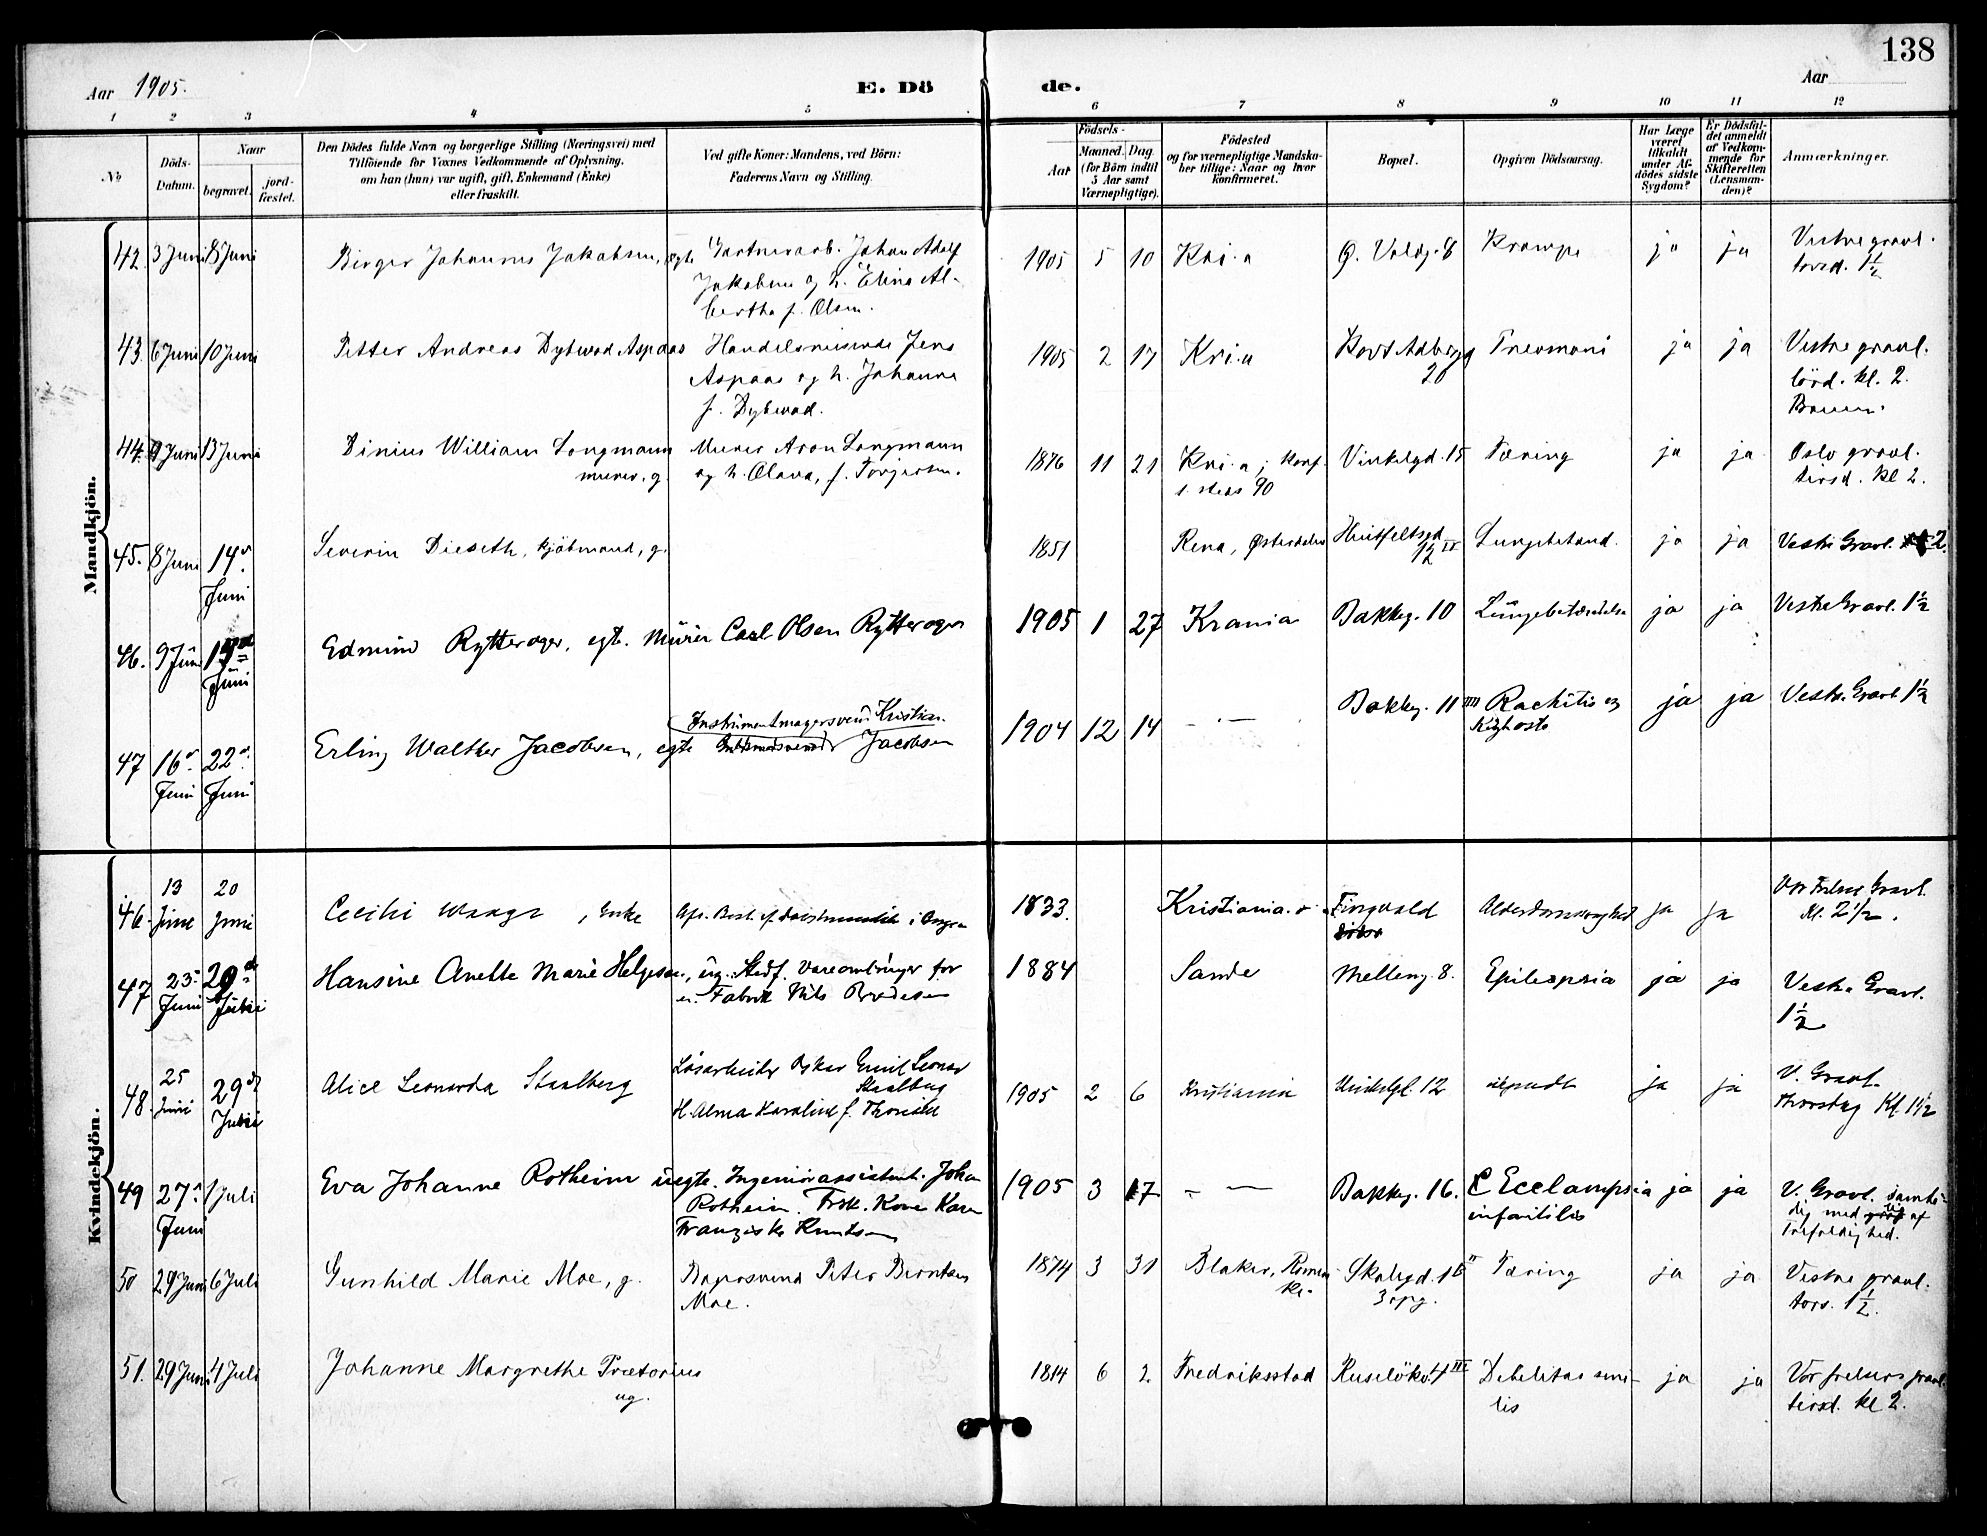 138
Aar 1905.
E. Dö de.
Aar
1 2 3 4 5 6 7 8 9 10 11 12
No
Döds-Datum.
Naar
begravet.
jord-fæstet.
Den Dödes fulde Navn og borgerlige Stilling (Næringsvei) med
Tilföiende for Voxnes Vedkommende af Oplysning,
om han (hun) var ugift, gift, Enkemand (Enke)
eller fraskilt.
Ved gifte Koner: Mandens, ved Börn:
Faderens Navn og Stilling.
Födsels-
Aar
Maaned. Dag
(for Börn indtil
5 Aar samt
Værnepligtige).
Födested
og for værnepligtige Mandska-
ber tillige: Naar og hvor
konfirmeret.
Bopæl.
Opgiven Dödsaarsag.
Har Læge
været
tilkaldt
under Af-
dödes sidste
Sygdom?
Er Dödsfal-
det anmeldt
af Vedkom-
mende for
Skifteretten
(Lensman-
den)?
Anmærkninger.
Mandkjön.
42. 3 Juni 8 Juni Birger Johannes Jakobsen, egte Gartnerarb. Johan Adolf 1905 5 10 Kri.a Ø. Voldg. 8 Krampe ja ja Vestre gravl.
Jakobsen og h. Elina Al-
bertha f. Olsen.
torsd. 1½
43. 6 Juni 10 Juni Petter Andreas Dybwad Aspaas Handelsreisende Jens 1905 2 17 Kri.a 20 Pnevmoni ja ja Vestre gravl.
Aspaas og h. Johanne
f. Dybwad.
lörd. kl. 2.
44. 9 Juni 13 Juni Dinius William Longmann Murer Aron Longmann 1876 11 21 Kri.a; konf. Vinkelgd. 15 Tæring ja ja Oslo gravl.
murer, g. og h. Olava, f. Torjersen. s. steds 90 tirsd. kl 2.
45. 8 Juni 14de Juni Severin Dieseth, kjöbmand, g. 1851 Rena, Østerdalen Huitfeltsgd 12 II Lungebetænd. ja ja Vestre Gravl. 2.
46. 9 Juni Juni Edmund Rytterager, egt. Murer Carl Olsen Rytterager 1905 1 27 Krania Bakkeg. 10 Lungebetændelse ja ja Vestre Gravl. 1½
47 16de Juni 22de Juni Erling Walther Jacobsen, egte Instrumentmagersvend Kristian Jacobsen 1904 12 14 - — Bakkeg. 11 III Rachitis og ja ja Vestre Gravl 1½
Kighoste
Kvindekjön.
46. 13 Juni 20 Juni Cecilie Waage, Enke 1833. Kristiania Tingvold Alderdomssvaghed ja ja Vor Frelsers Gravl.
Kl. 2½.
47 23 Juni Hansine Anette Marie Helgesen, ug. Stedf. Vareombringer for 1884 Sande Melleng. 8. Epilepsia ja ja Vestre Gravl.
en Fabrik Nils
1½
48. 25 Juni 29de Alice Leonarda Staalberg Løsarbeider Oskar Emil Leonar 1905 2 6 Kristiania 12 ja ja V. Gravl.
Staalberg
H. Alma Karoline f.
Thorsdag Kl. 1½
49 27de Juni 1 Juli Eva Johanne Rotheim uegte. Ingeniörassistent Johan 1905 3 17 - — Bakkeg. 16. Ecclampsia ja ja V. Gravl. samti-
Rotheim. Frsk. Kone Karen
Franziska Knutsen
infantilis
dig med af
Trefoldighed.
50 29 Juni 6 Juli Gunhild Marie Moe, g. Bagersvend Peter Berntsen 1874 3 31 Blaker, Romerike Skolegd. 16 II Tæring ja ja Vestre gravl.
Moe.
3 opg.
tors. 1½.
51. 29 Juni 4 Juli Johanne Margrethe Prætorius 1814 6 2. Fredriksstad Ruselökv. 4 III Debilitas seni- ja ja Vor frelsers gravl.
ug. lis tirsd. kl 2.